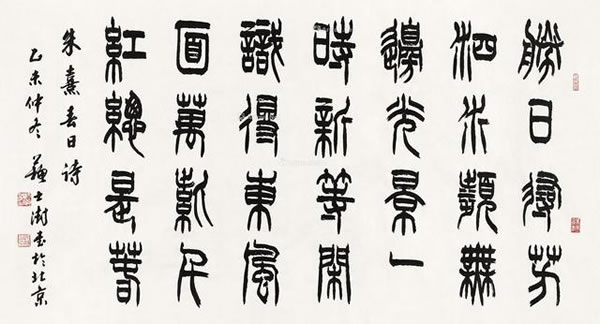 勝日尋芳
泗水瀕無
邊光景一
時新等閒
識得東風
面萬紫千
紅總是春
朱熹春日詩
乙未仲冬蘇士澍書於北京